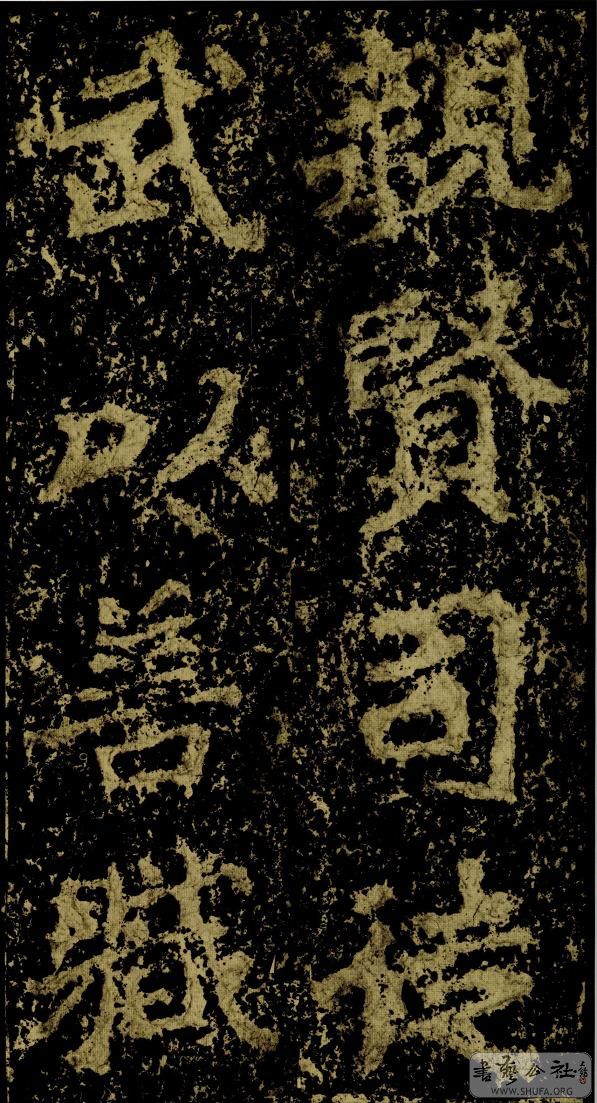 親賢司徒
武以善職
書藝公社
WWW.SHUFA.ORG